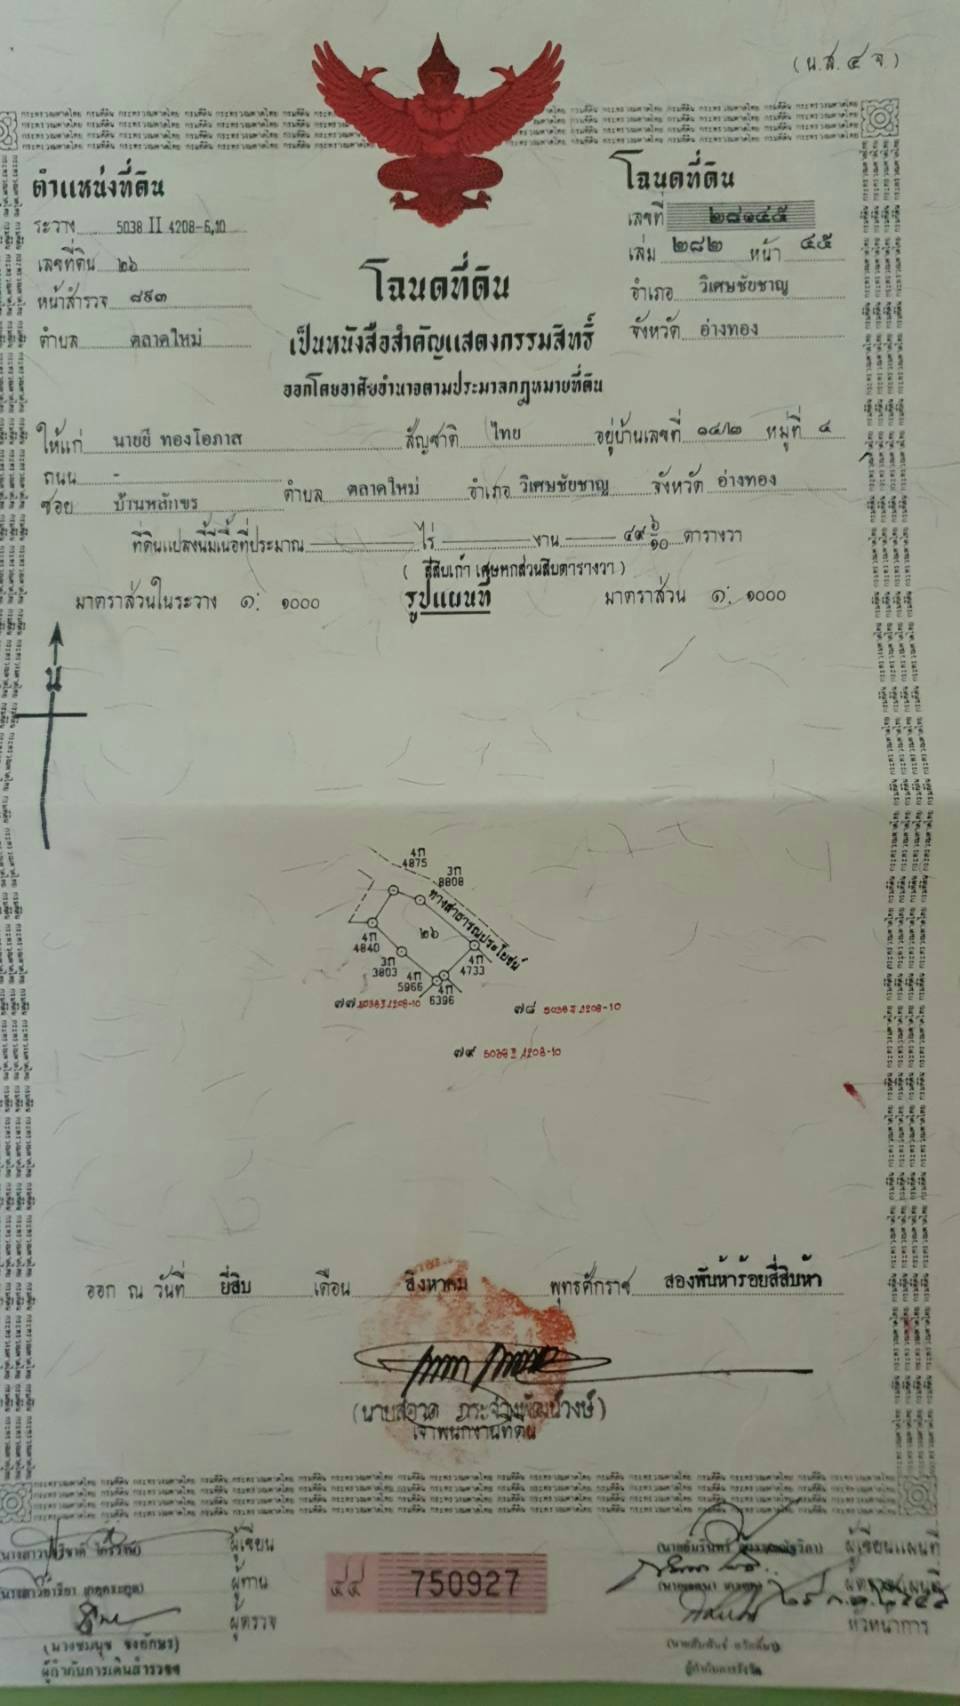 (น.ส.๔ จ)
ตำแหน่งที่ดิน
ระวาง 5038 II 4208-6,10
เลขที่ดิน ๒๖
หน้าสำรวจ ๘๙๓
ตำบล ตลาดใหม่
โฉนดที่ดิน
เลขที่ ๒๘๑๔๕
เล่ม ๒๘๒ หน้า ๔๕
อำเภอ วิเศษชัยชาญ
จังหวัด อ่างทอง
โฉนดที่ดิน
เป็นหนังสือสำคัญแสดงกรรมสิทธิ์
ออกโดยอาศัยอำนาจตามประมวลกฎหมายที่ดิน
ให้แก่ นายยี ทองโอภาส สัญชาติ ไทย อยู่บ้านเลขที่ ๑๔/๒ หมู่ที่ ๔
ถนน -
ซอย บ้านหลักขร ตำบล ตลาดใหม่ อำเภอ วิเศษชัยชาญ จังหวัด อ่างทอง
ที่ดินแปลงนี้มีเนื้อที่ประมาณ — ไร่ — งาน — ๔๙ ๖/๑๐ ตารางวา
(สี่สิบเก้า เศษหกส่วนสิบตารางวา)
มาตราส่วนในระวาง ๑: ๑๐๐๐ รูปแผนที่ มาตราส่วน ๑: ๑๐๐๐
น
4ก
4875
3ก
8808
ทางสาธารณประโยชน์
๒๖
4ก
4840
3ก
3803
4ก
5966
4ก
6396
4ก
4733
๗๗ 5038 II 4208-10
๗๘ 5038 II 4208-10
๗๙ 5038 II 4208-10
ออก ณ วันที่ ยี่สิบ เดือน สิงหาคม พุทธศักราช สองพันห้าร้อยสี่สิบห้า
เจ้าพนักงานที่ดิน
ผู้เขียน
ผู้ทาน
ผู้ตรวจ
ผู้กำกับการเดินสำรวจฯ
๔๔ 750927
ผู้เขียนแผนที่
ผู้ตรวจแผนที่
หัวหน้าการ
ผู้กำกับการรังวัด